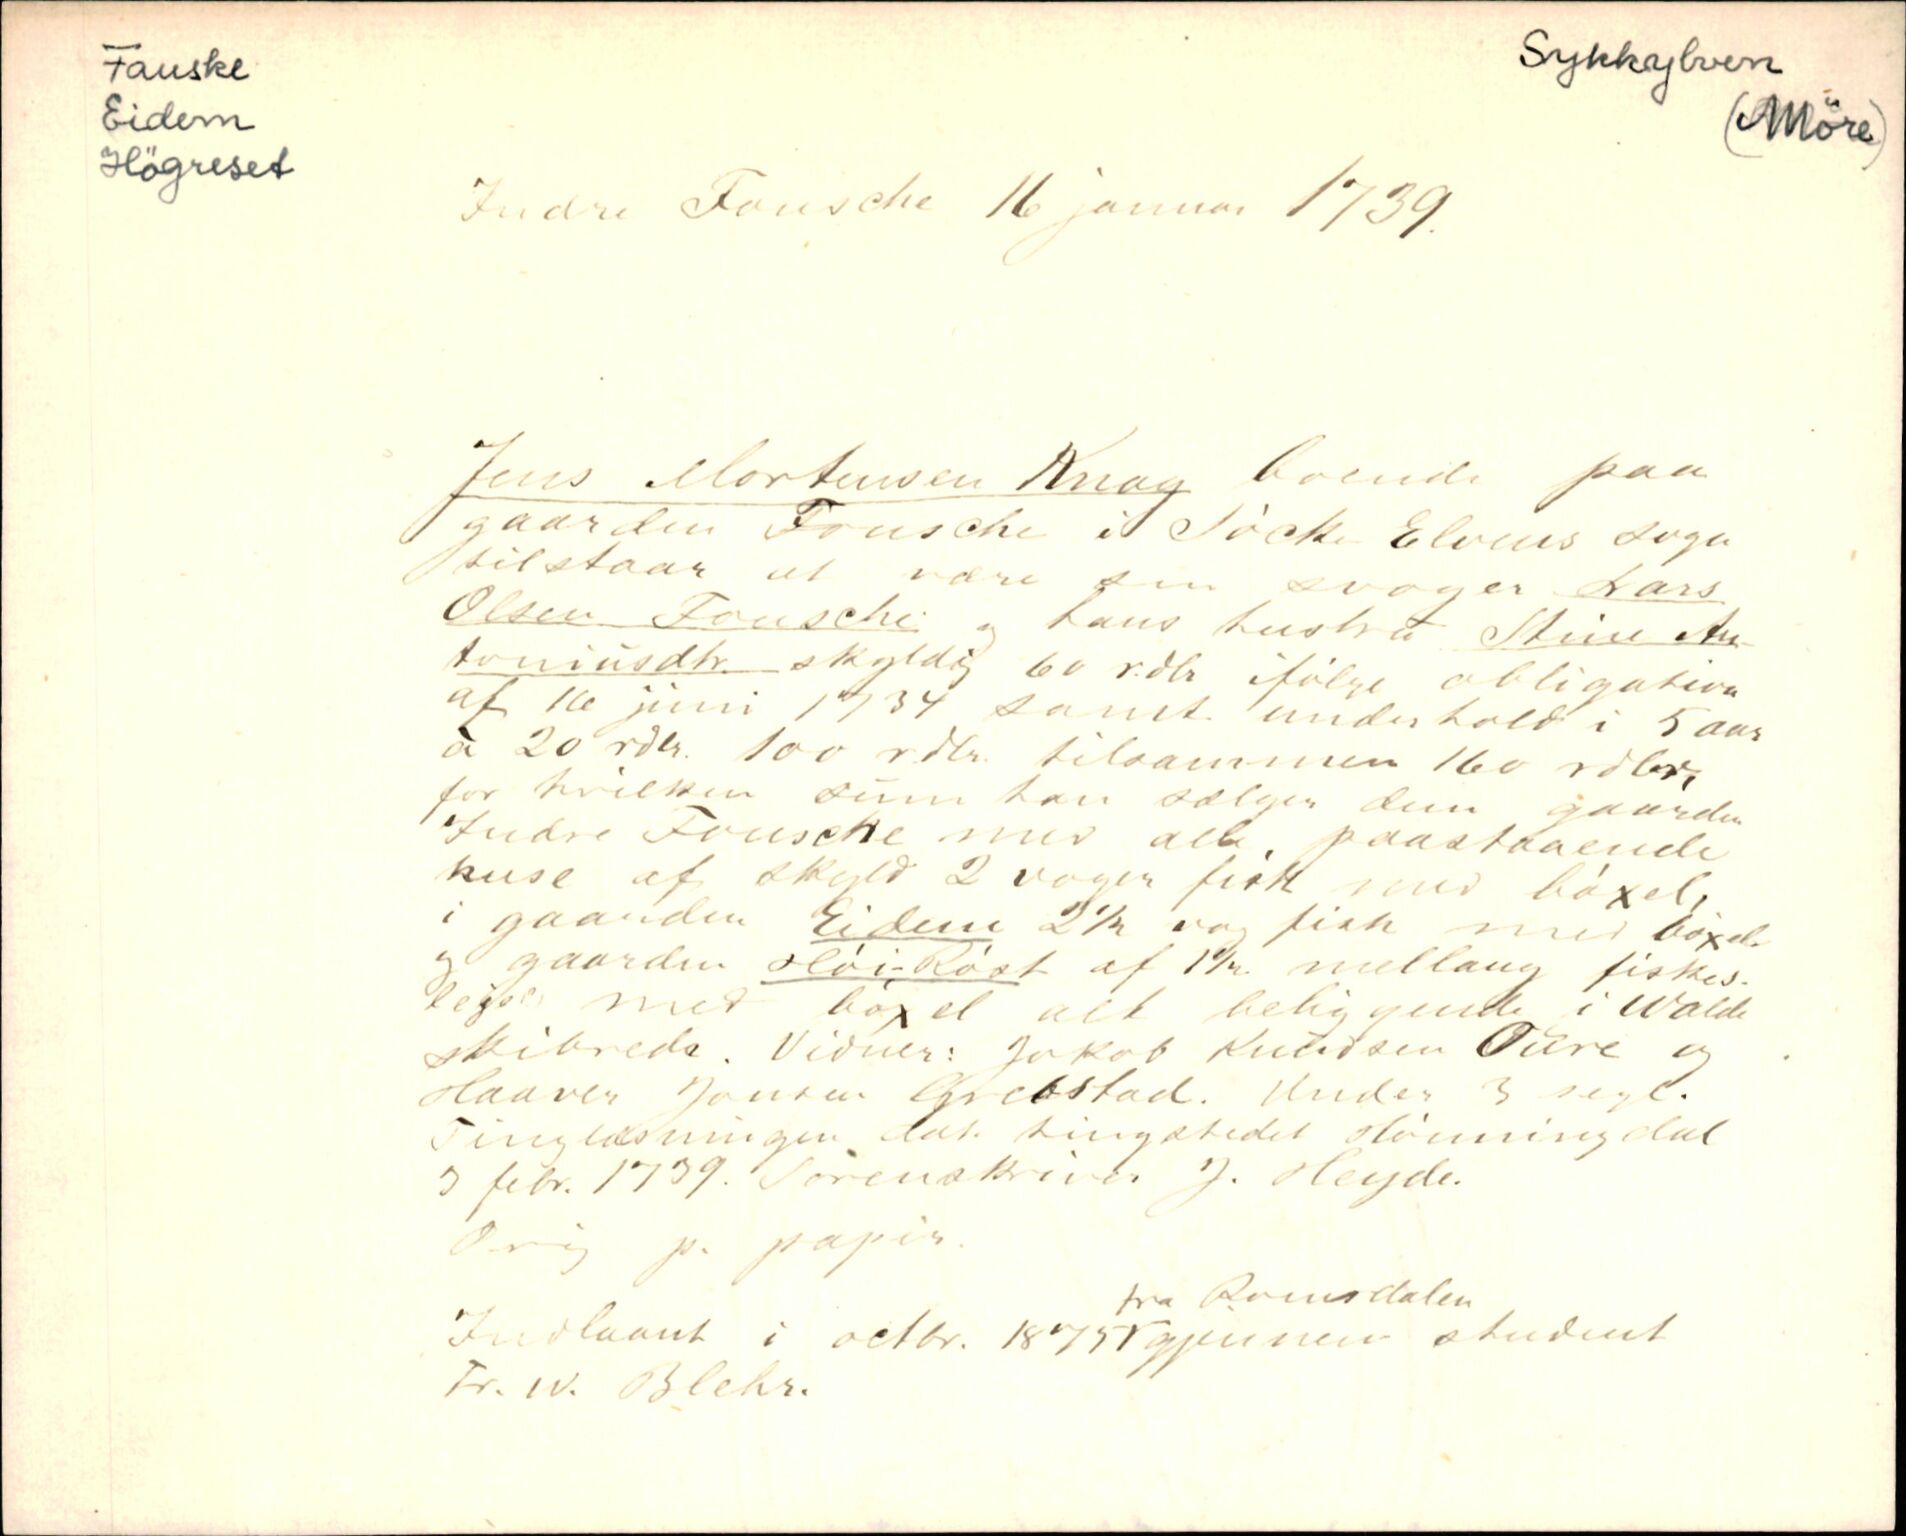 Fauske
Eidem
Högreset
Sykkylven
(Möre)
Indre Fousche 16 januar 1739.
Jens Mortensen Knag boende paa
gaarden Fousche i Söcke Elvens sogn
tilstaar at være sin svoger Lars
Olsen Fousche og hans hustru Stine An-
toniusdtr. skyldig 60 rdlr ifölge obligation
af 16 juni 1734 samt underhold i 5 aar
à 20 rdlr. 100 rdlr. tilsammen 160 rdlr,
for hvilken sum han sælger dem gaarden
Indre Fousche med alle paastaaende
huse af skyld 2 voger fisk med böxel,
i gaarden Eidem 2 1/2 vog fisk med böxel
og gaarden Höi-Röst af 1 1/2 mellaug fiskes-
leje med böxel alt beliggende i Walde
skibrede. Vidner: Jakob Knudsen Ture og
Haaver Jonsen Grebstad. Under 3 segl.
Tinglæsningen dat. tingstedet Hönningdal
3 febr. 1739. Sorenskriver J. Heyde.
Orig p. papir.
fra Romsdalen
Indlaant i octbr. 1875 gjennem student
Fr. W. Blehr.